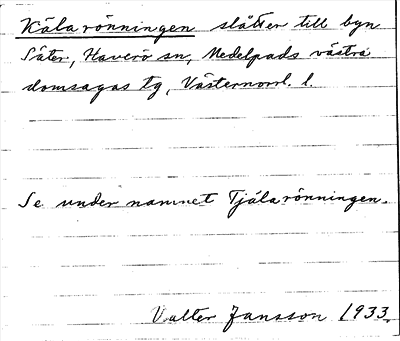 Käla rönningen slåtter till byn
Säter, Haverö sn, Medelpads västra
domsagas tg, Västernorrl. l.
Se under namnet Tjäla rönningen.
Valter Jansson 1933.